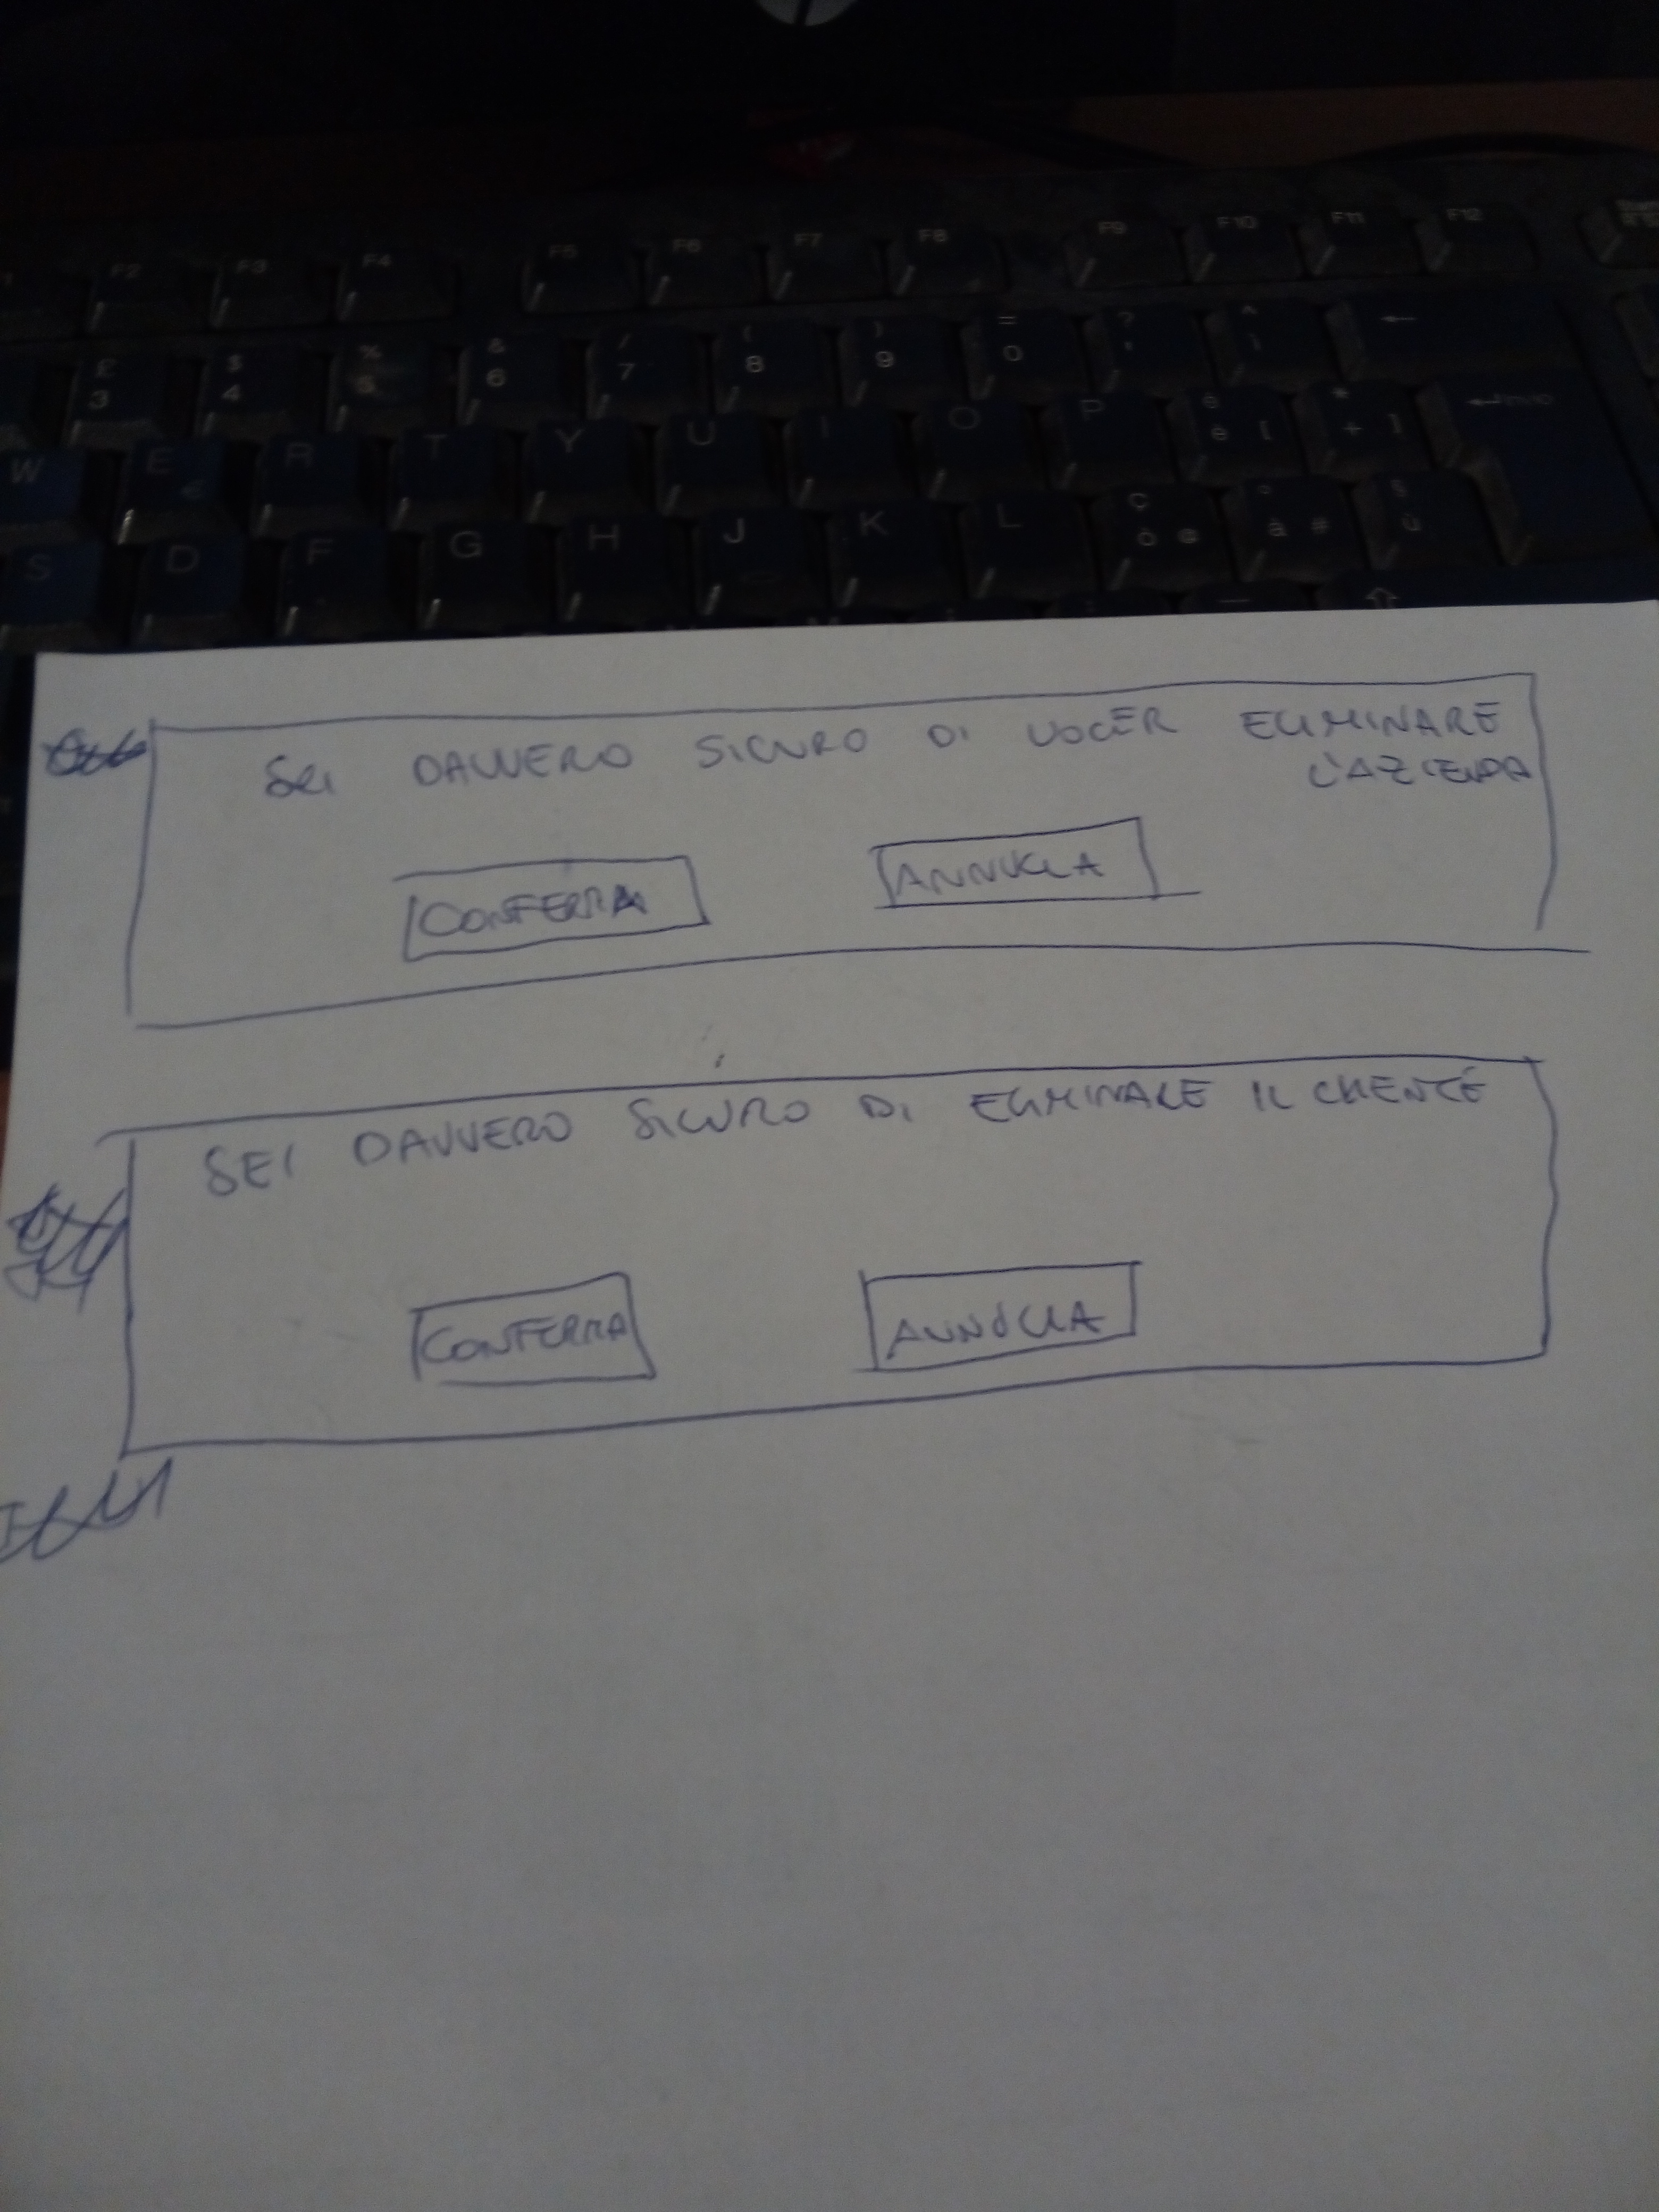 F2 F3 F4 F5 F6 F7 F8 F9 F10 F11 F12
£ $ % & / ( ) = ? ^
3 4 5 6 7 8 9 0 ' ì
W E € R T Y U I O P é è [ * + ] INVIO
S D F G H J K L ç ò @ ° à # § ù
SEI DAVVERO SICURO DI VOLER ELIMINARE
L'AZIENDA
CONFERMA ANNULLA
SEI DAVVERO SICURO DI ELIMINARE IL CLIENTE
CONFERMA ANNULLA